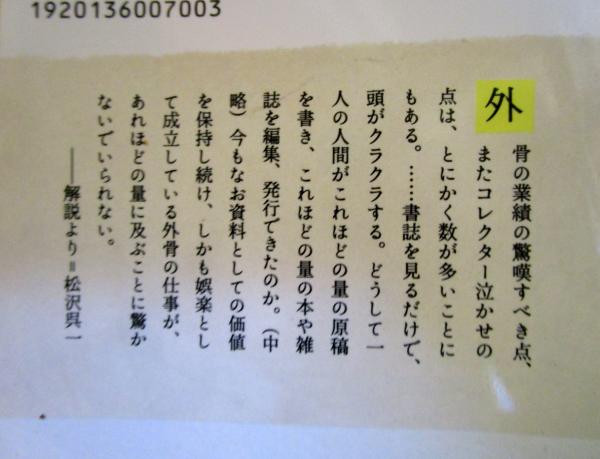 1920136007003
外骨の業績の驚嘆すべき点、
またコレクター泣かせの
点は、とにかく数が多いことに
もある。……書誌を見るだけで、
頭がクラクラする。どうして一
人の人間がこれほどの量の原稿
を書き、これほどの量の本や雑
誌を編集、発行できたのか。(中
略)今もなお資料としての価値
を保持し続け、しかも娯楽とし
て成立している外骨の仕事が、
あれほどの量に及ぶことに驚か
ないでいられない。
――解説より=松沢呉一